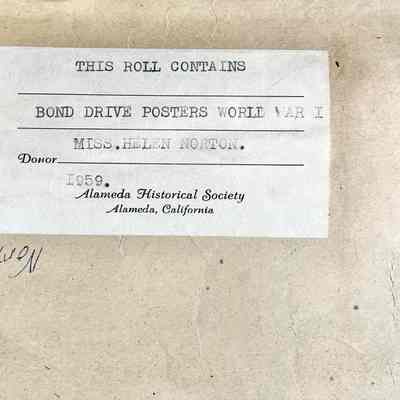 THIS ROLL CONTAINS
BOND DRIVE POSTERS WORLD WAR I
MISS.HELEN NORTON.
Donor
1959.
Alameda Historical Society
Alameda, California